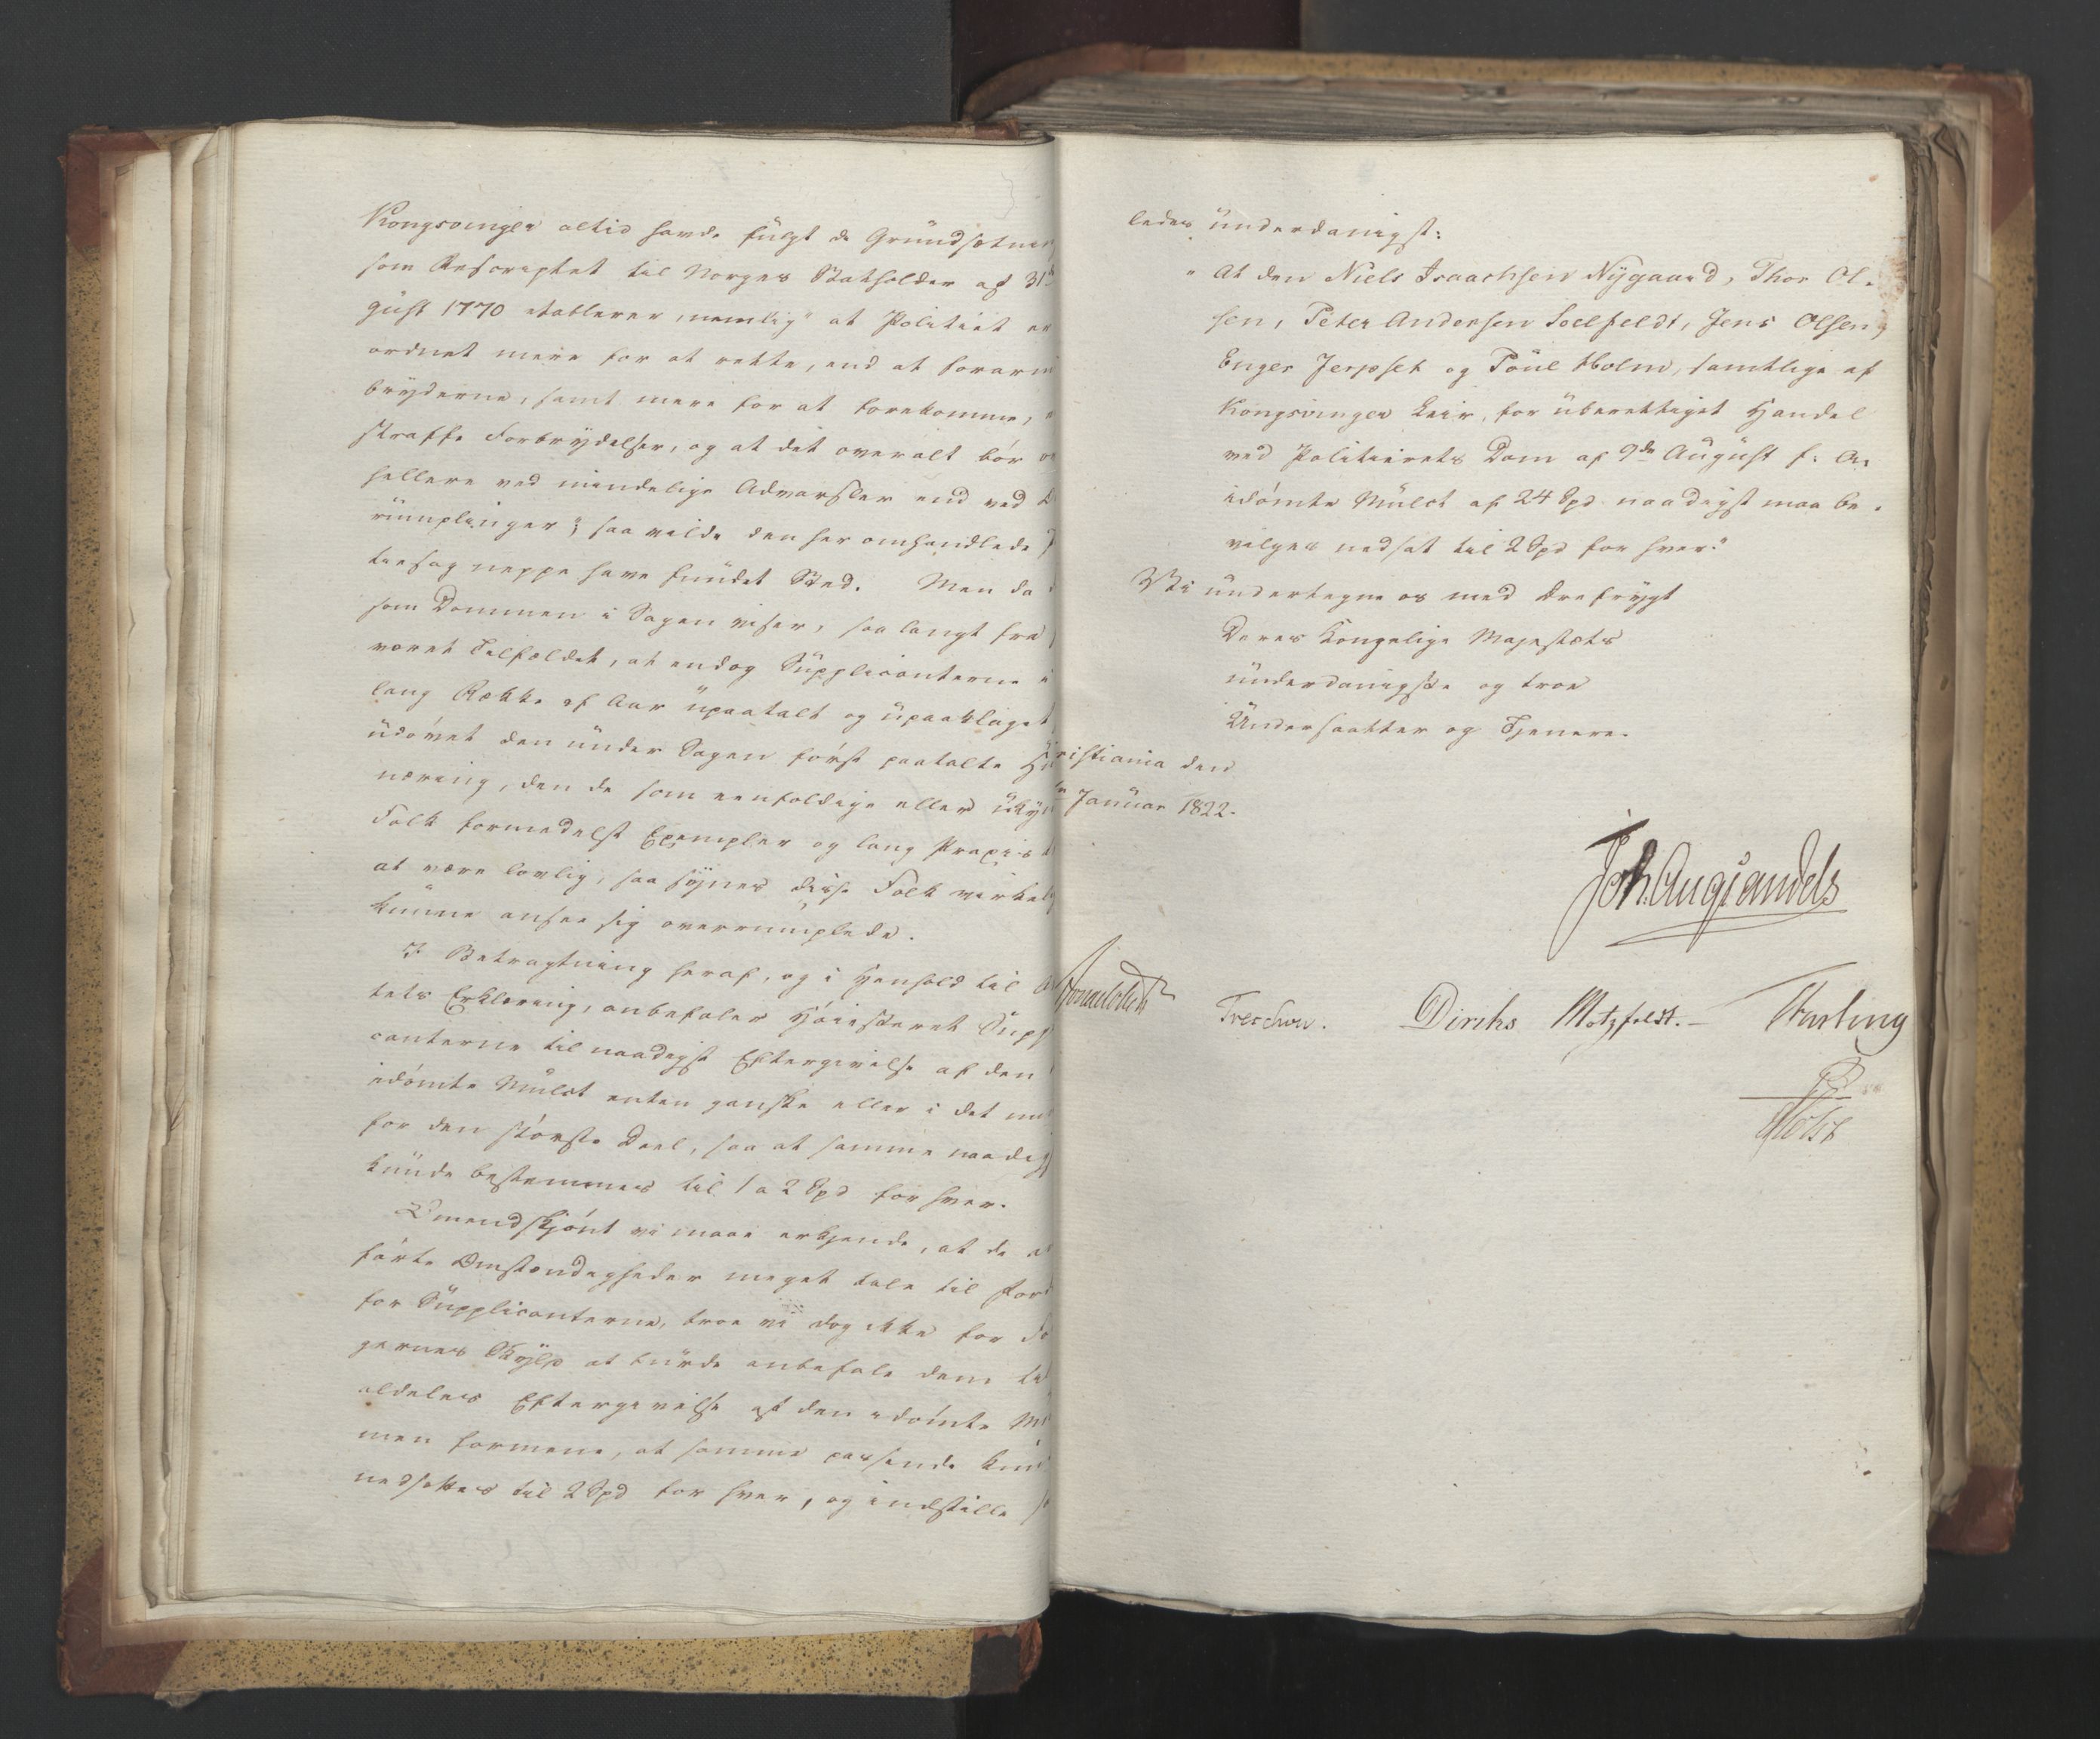 Kongsvinger altid havde fülgt de Gründsætnin
som Rescriptet til Norges Statholder af 31
güst 1770 etablerer, nemlig "at Politiet er
ordnet mere for at rette, end at
brÿderne, samt mere for at forekomme,
straffe Forbrÿdelser, og at det overalt bör
hellere ved mindelige Advarsler end ved
rümplinger"; saa vilde den her omhandlede
tiesag neppe have fündet Sted. Men da
som Dommen i Sagen viser, saa langt fra
været Tilfældet, at endog Süpplicanterne
lang Række af Aar üpaatalt og üpaaklaget
üdövet den ünder Sagen först paatalte
næring, den de som eenfoldige eller
Folk formedelst Exempler og lang Praxis
at være lovlig, saa sÿnes disse Folk virkelig
künne ansee sig overrümplede.
I Betragtning heraf, og i Henhold til
tets Erklæring, anbefaler Höiesteret Süpp
canterne til naadigst Eftergivelse af den
idömte Mülct enten ganske eller i det
for den störste Deel, saa at samme naadigst
künde bestemmes til 1 a 2 Spd for hver.
Omendskjönt vi maae erkjende, at de
förte Omstændigheder meget tale til
for Süpplicanterne, troe vi dog ikke for
gernes Skÿld at bürde anbefale dem til
aldeles Eftergivelse af den idömte
men formene, at samme passende
nedsættes til 2 Spd for hver, og indstille
ledes ünderdanigst:
"At den Niels Isaachsen Nÿgaard, Thor Ol-
sen, Peter Andersen Soelfeldt, Jens Olsen,
Enger Jerpset og Poül Holm, samtlige af
Kongsvinger Leir, for überettiget Handel
ved Politierets Dom af 9de Aügüst f: A:
idömte Mülct af 24 Spd naadigst maa be-
vilges nedsat til 2 Spd for hver."
Vi ündertegne os med Ærefrÿgt
Deres Kongelige Majestæts
ünderdanigste og troe
Undersaatter og Tjenere.
ristiania den
Janüar 1822.
Joh. Aug Sandels
Sommerhielm
Treschow. Diriks Motzfeldt. Fasting
Holst